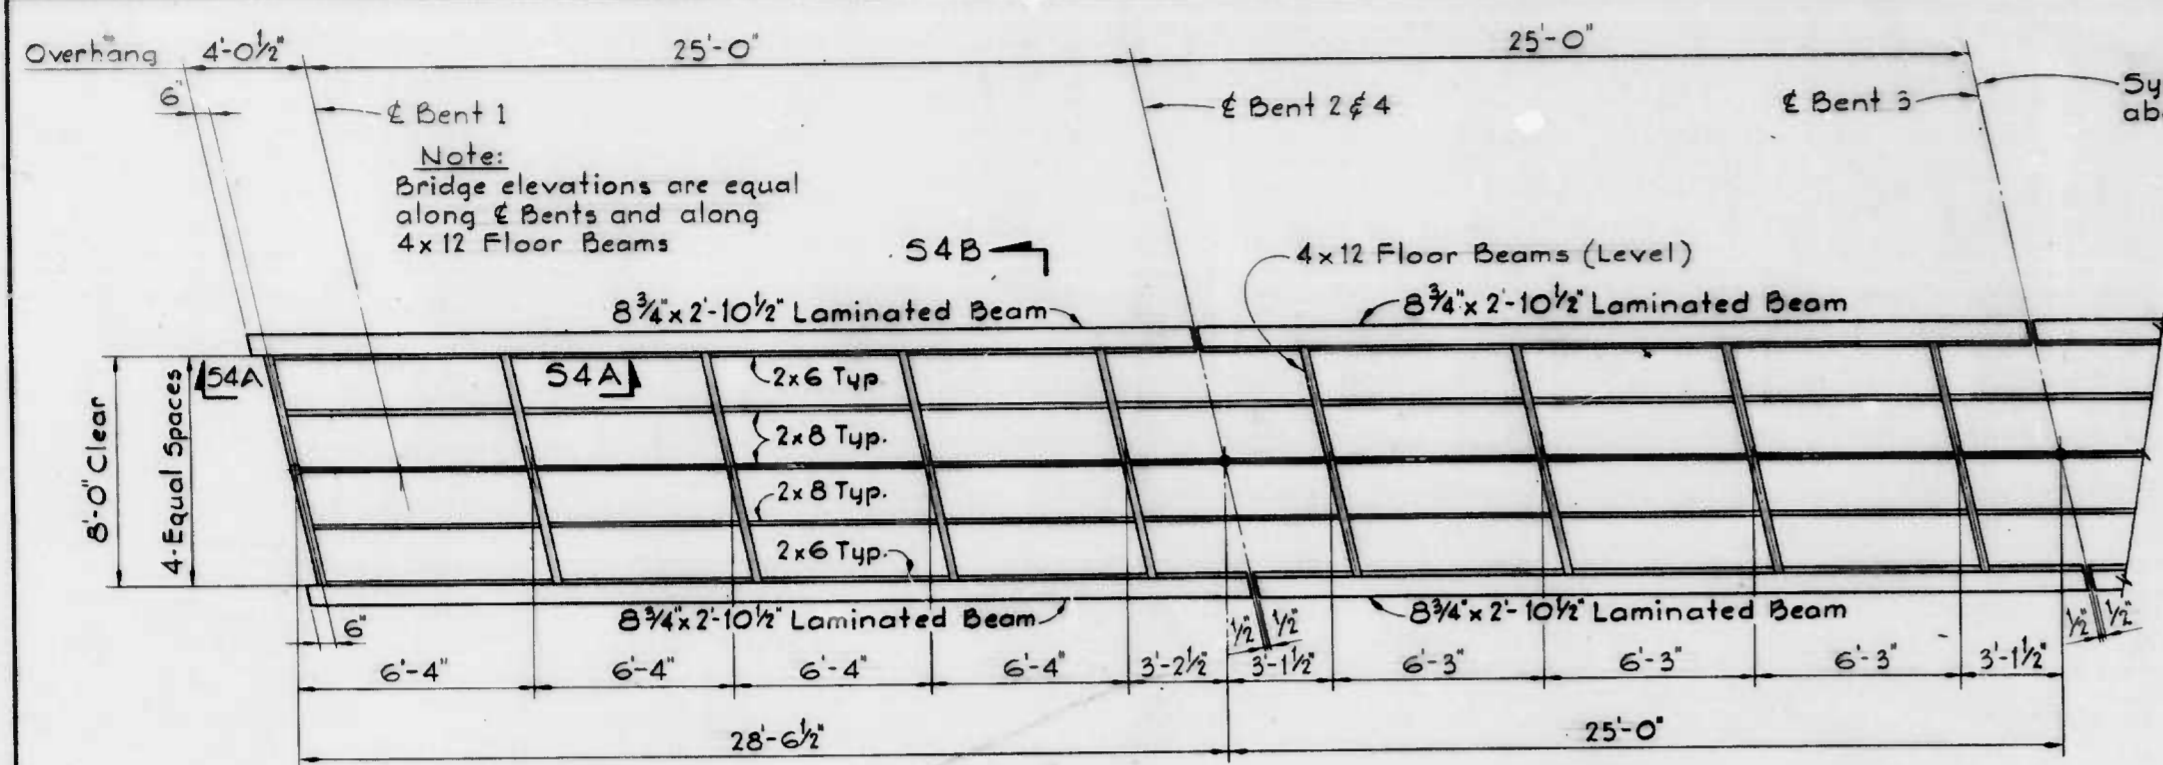 Overhang 4'-0½" 25'-0" 25'-0"
6"
℄ Bent 1
℄ Bent 2 & 4
℄ Bent 3
Note:
Bridge elevations are equal
along ℄ Bents and along
4x12 Floor Beams
S4B
4x12 Floor Beams (Level)
8¾"x 2'-10½" Laminated Beam
8¾"x 2'-10½" Laminated Beam
S4A
S4A
2x6 Typ
8'-0" Clear
4-Equal Spaces
2x8 Typ.
2x8 Typ.
2x6 Typ.
8¾"x 2'-10½" Laminated Beam
8¾"x 2'-10½" Laminated Beam
6"
½" ½"
½" ½"
6'-4" 6'-4" 6'-4" 6'-4" 3'-2½" 3'-1½" 6'-3" 6'-3" 6'-3" 3'-1½"
28'-6½" 25'-0"